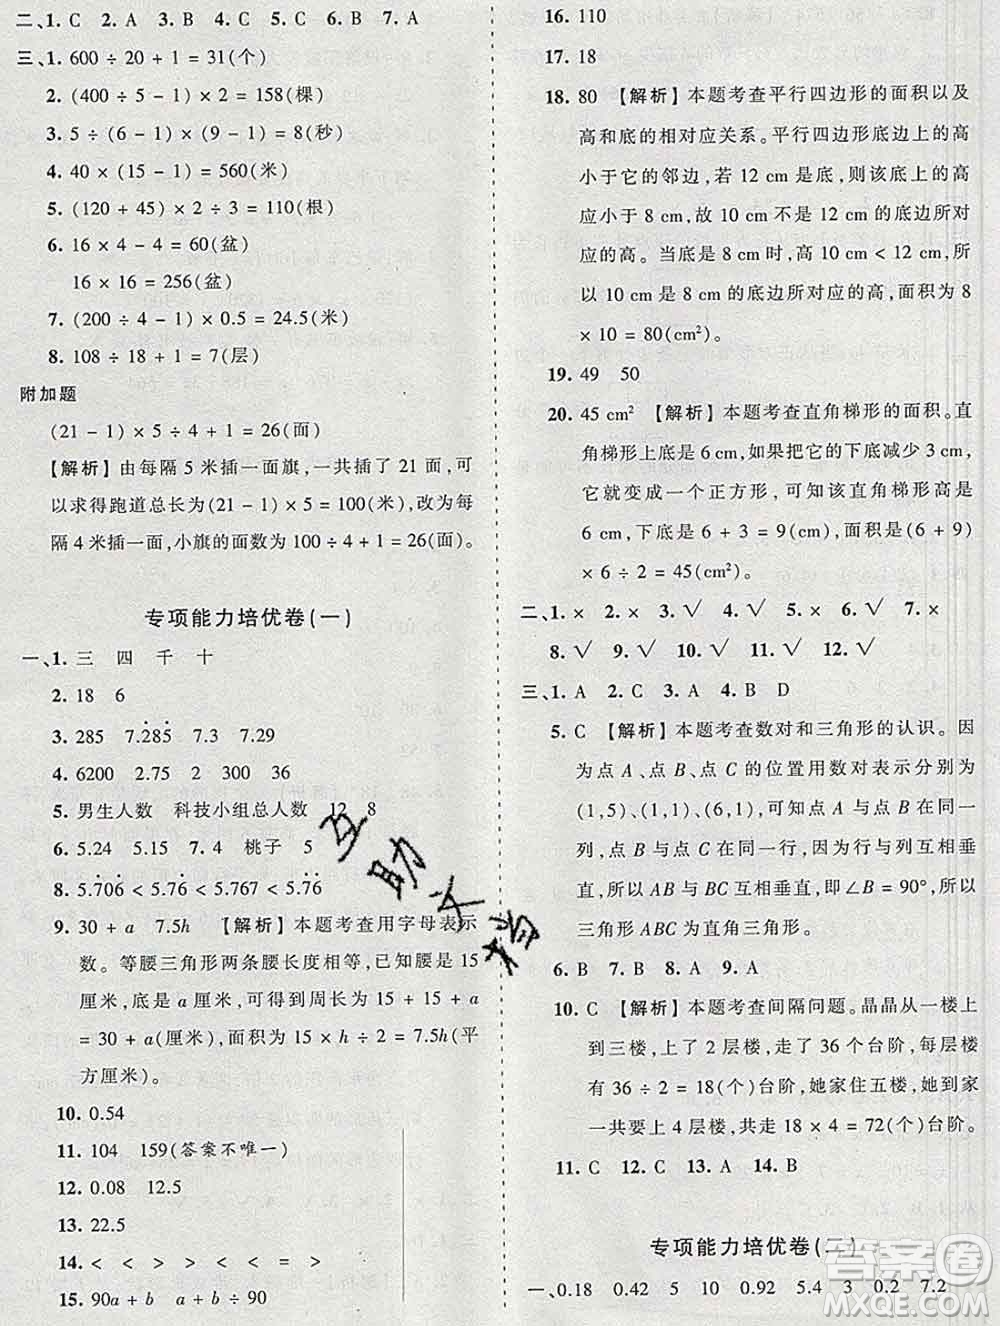 二、1. C  2. A  3. B  4. C  5. C  6. B  7. A
三、1. 600 ÷ 20 + 1 = 31(个)
2. (400 ÷ 5 - 1) × 2 = 158(棵)
3. 5 ÷ (6 - 1) × (9 - 1) = 8(秒)
4. 40 × (15 - 1) = 560(米)
5. (120 + 45) × 2 ÷ 3 = 110(根)
6. 16 × 4 - 4 = 60(盆)
16 × 16 = 256(盆)
7. (200 ÷ 4 - 1) × 0.5 = 24.5(米)
8. 108 ÷ 18 + 1 = 7(层)
附加题
(21 - 1) × 5 ÷ 4 + 1 = 26(面)
【解析】由每隔 5 米插一面旗,一共插了 21 面,可
以求得跑道总长为(21 - 1) × 5 = 100(米),改为每
隔 4 米插一面,小旗的面数为 100 ÷ 4 + 1 = 26(面)。
专项能力培优卷(一)
一、1. 三 四 千 十
2. 18  6
3. 285  7.2̇85̇  7.3  7.29
4. 6200  2.75  2  300  36
5. 男生人数 科技小组总人数 12 8
6. 5.24  5.15  7. 4 桃子 5
8. 5.7̇06̇ < 5.7̇6̇ < 5.767 < 5.7̇6̇
9. 30 + a  7.5h 【解析】本题考查用字母表示
数。等腰三角形两条腰长度相等,已知腰是 15
厘米,底是 a 厘米,可得到周长为 15 + 15 + a
= 30 + a(厘米),面积为 15 × h ÷ 2 = 7.5h(平
方厘米)。
10. 0.54
11. 104  159(答案不唯一)
12. 0.08  12.5
13. 22.5
14. < < < = > >
15. 90a + b  a ÷ 90 + b
16. 110
17. 18
18. 80 【解析】本题考查平行四边形的面积以及
高和底的相对应关系。平行四边形底边上的高
小于它的邻边,若 12 cm 是底,则该底上的高
应小于 8 cm,故 10 cm 不是 12 cm 的底边所对
应的高。当底边是 8 cm 时,高 10 cm < 12 cm,所
以 10 cm 是 8 cm 的底边所对应的高,面积为 8
× 10 = 80(cm²)。
19. 49  50
20. 45 cm² 【解析】本题考查直角梯形的面积。直
角梯形上底是 6 cm,如果把它的下底减少 3 cm,
它就变成一个正方形,可知该直角梯形高是
6 cm,下底是 6 + 3 = 9(cm),面积是(6 + 9)
× 6 ÷ 2 = 45(cm²)。
二、1. ×  2. ×  3. √  4. √  5. ×  6. √  7. ×
8. √  9. ×  10. √  11. √  12. √
三、1. A  2. C  3. A  4. B  D
5. C 【解析】本题考查数对和三角形的认识。因
为点 A、点 B、点 C 的位置用数对表示分别为
(1,5),(1,1),(6,1),可知点 A 与点 B 在同一
列,点 B 与点 C 在同一行,因为行与列互相垂
直,所以 AB 与 BC 互相垂直,即∠B = 90°,所以
三角形 ABC 为直角三角形。
6. B  7. B  8. A  9. A
10. C 【解析】本题考查间隔问题。晶晶从一楼上
到三楼,上了 2 层楼,走了 36 个台阶,每层楼
有 36 ÷ 2 = 18(个)台阶,她家住五楼,她到家
一共要上 4 层楼,共走 18 × 4 = 72(个)台阶。
11. C  12. C  13. A  14. B
专项能力培优卷(二)
一、0.18  0.42  5  10  0.92  5.4  3  0.2  7.2
互助文档
答案圈
MXQE.COM